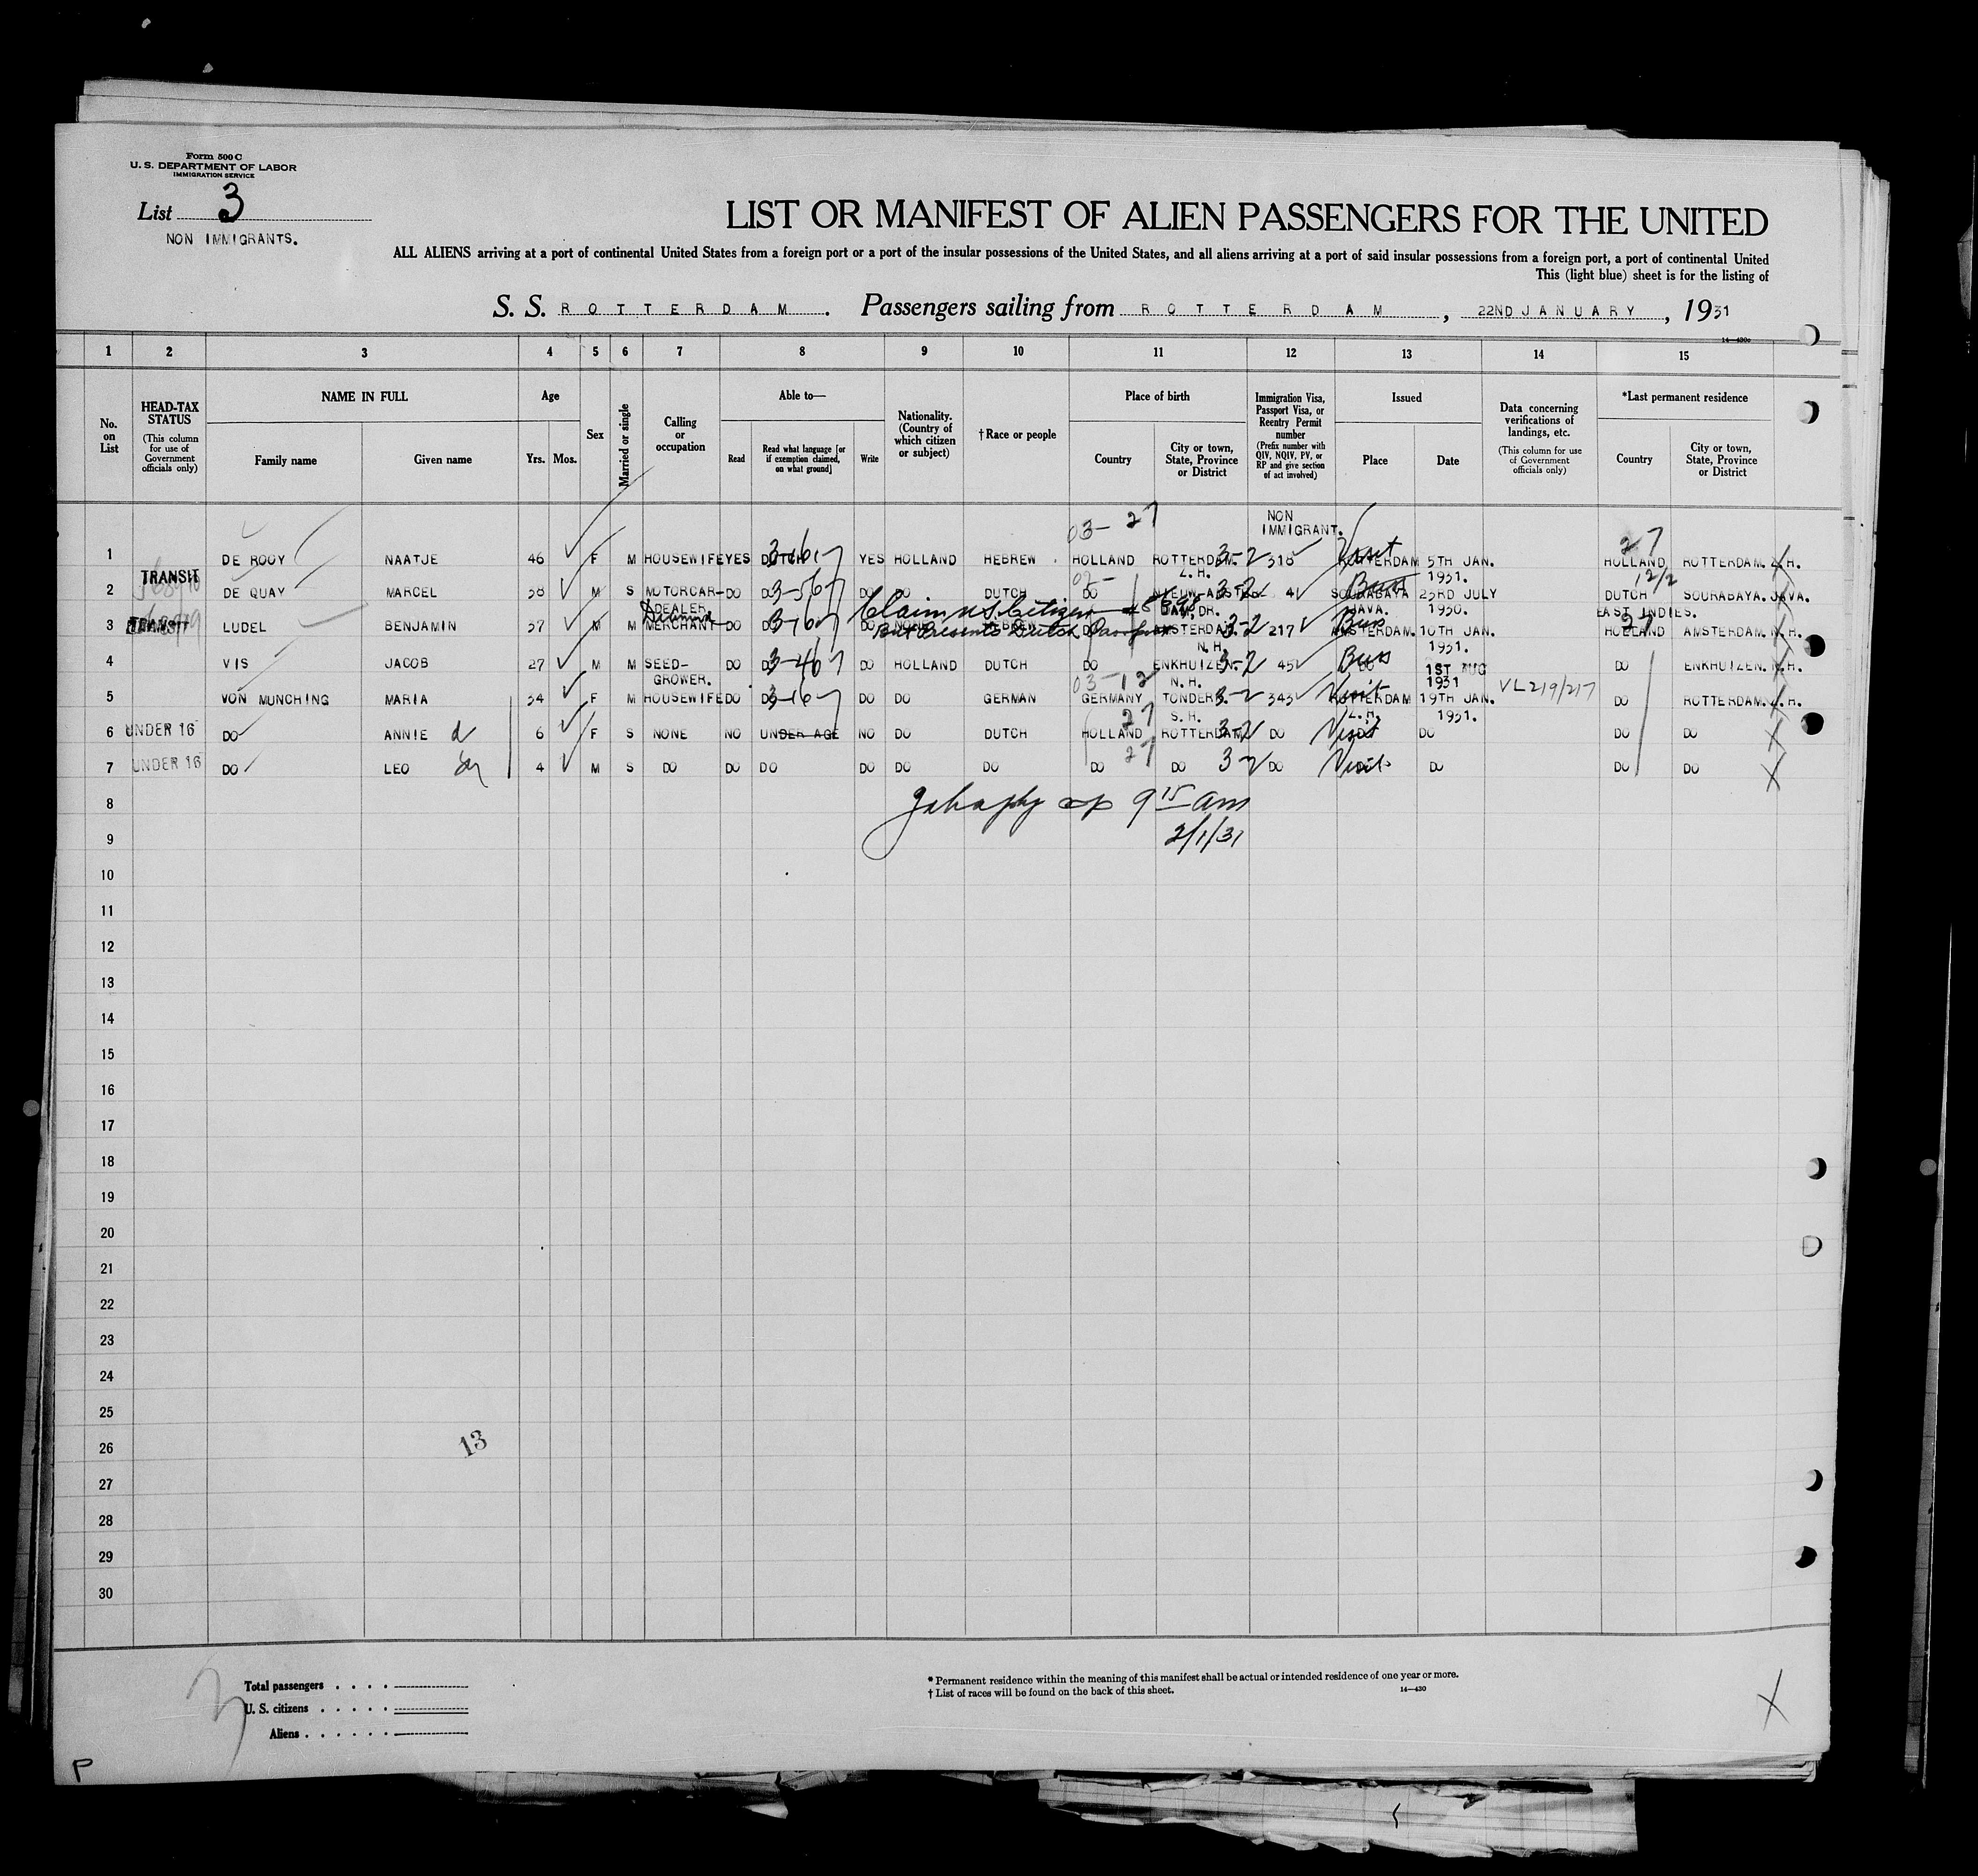 Form 500 C
U. S. DEPARTMENT OF LABOR
IMMIGRATION SERVICE
List 3
NON IMMIGRANTS.
LIST OR MANIFEST OF ALIEN PASSENGERS FOR THE UNITED
ALL ALIENS arriving at a port of continental United States from a foreign port or a port of the insular possessions of the United States, and all aliens arriving at a port of said insular possessions from a foreign port, a port of continental United
This (light blue) sheet is for the listing of
S. S. ROTTERDAM. Passengers sailing from ROTTERDAM, 22ND JANUARY, 1931
14—430c
1 2 3 4 5 6 7 8 9 10 11 12 13 14 15
No. on List
HEAD-TAX STATUS (This column for use of Government officials only)
NAME IN FULL
Family name Given name
Age
Yrs. Mos.
Sex
Married or single
Calling or occupation
Able to—
Read Read what language [or if exemption claimed, on what ground] Write
Nationality. (Country of which citizen or subject)
† Race or people
Place of birth
Country City or town, State, Province or District
Immigration Visa, Passport Visa, or Reentry Permit number (Prefix number with QIV, NQIV, PV, or RP and give section of act involved)
Issued
Place Date
Data concerning verifications of landings, etc. (This column for use of Government officials only)
*Last permanent residence
Country City or town, State, Province or District
03- 27 NON IMMIGRANT. 27
1 DE ROOY NAATJE 46 F M HOUSEWIFE YES DUTCH YES HOLLAND HEBREW HOLLAND ROTTERDAM. 3-2 318 Visit ROTTERDAM 5TH JAN. HOLLAND ROTTERDAM. Z.H.
Z.H. 1931.
2 TRANSIT DE QUAY MARCEL 38 M S MOTORCAR- DO DO DO DO DUTCH DO NIEUW-AMSTER 3-2 4 Bus SOURABAYA 23RD JULY DUTCH SOURABAYA. JAVA.
DEALER. Claim U.S. Citizen DAM, DR. JAVA. 1930. EAST INDIES.
3 TRANSIT LUDEL BENJAMIN 37 M M MERCHANT DO 3-167 DO NONE HEBREW DO AMSTERDAM. 3-2 217 Bus AMSTERDAM. 10TH JAN. HOLLAND AMSTERDAM. N.H.
But Presents Dutch Passport N.H. 1931.
4 VIS JACOB 27 M M SEED- DO 3-467 DO HOLLAND DUTCH DO ENKHUIZEN. 3-2 45 Bus DO 1ST AUG DO ENKHUIZEN. N.H.
GROWER. 03-12 N.H. 1931
5 VON MUNCHING MARIA 34 F M HOUSEWIFE DO 3-167 DO DO GERMAN GERMANY TONDER. 3-2 343 Visit ROTTERDAM 19TH JAN. VL219/217 DO ROTTERDAM. Z.H.
27 S.H. Z.H. 1931.
6 UNDER 16 DO ANNIE d 6 F S NONE NO UNDER AGE NO DO DUTCH HOLLAND ROTTERDAM 3-2 DO Visit DO DO DO
27
7 UNDER 16 DO LEO 4 M S DO DO DO DO DO DO DO DO 3-2 DO Visit DO DO DO
8 9 15 am
9 2/1/31
10
11
12
13
14
15
16
17
18
19
20
21
22
23
24
25
26 13
27
28
29
30
Total passengers
U. S. citizens
Aliens
* Permanent residence within the meaning of this manifest shall be actual or intended residence of one year or more.
† List of races will be found on the back of this sheet. 14—430
P